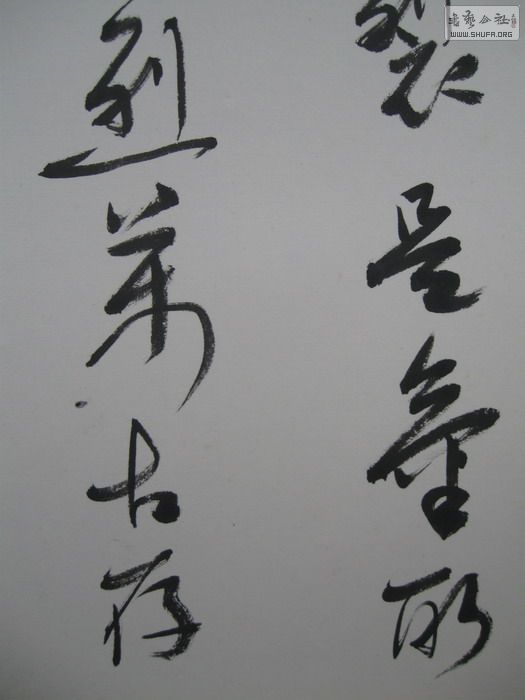 書藝公社
WWW.SHUFA.ORG
裂是氣所
烈萬古存